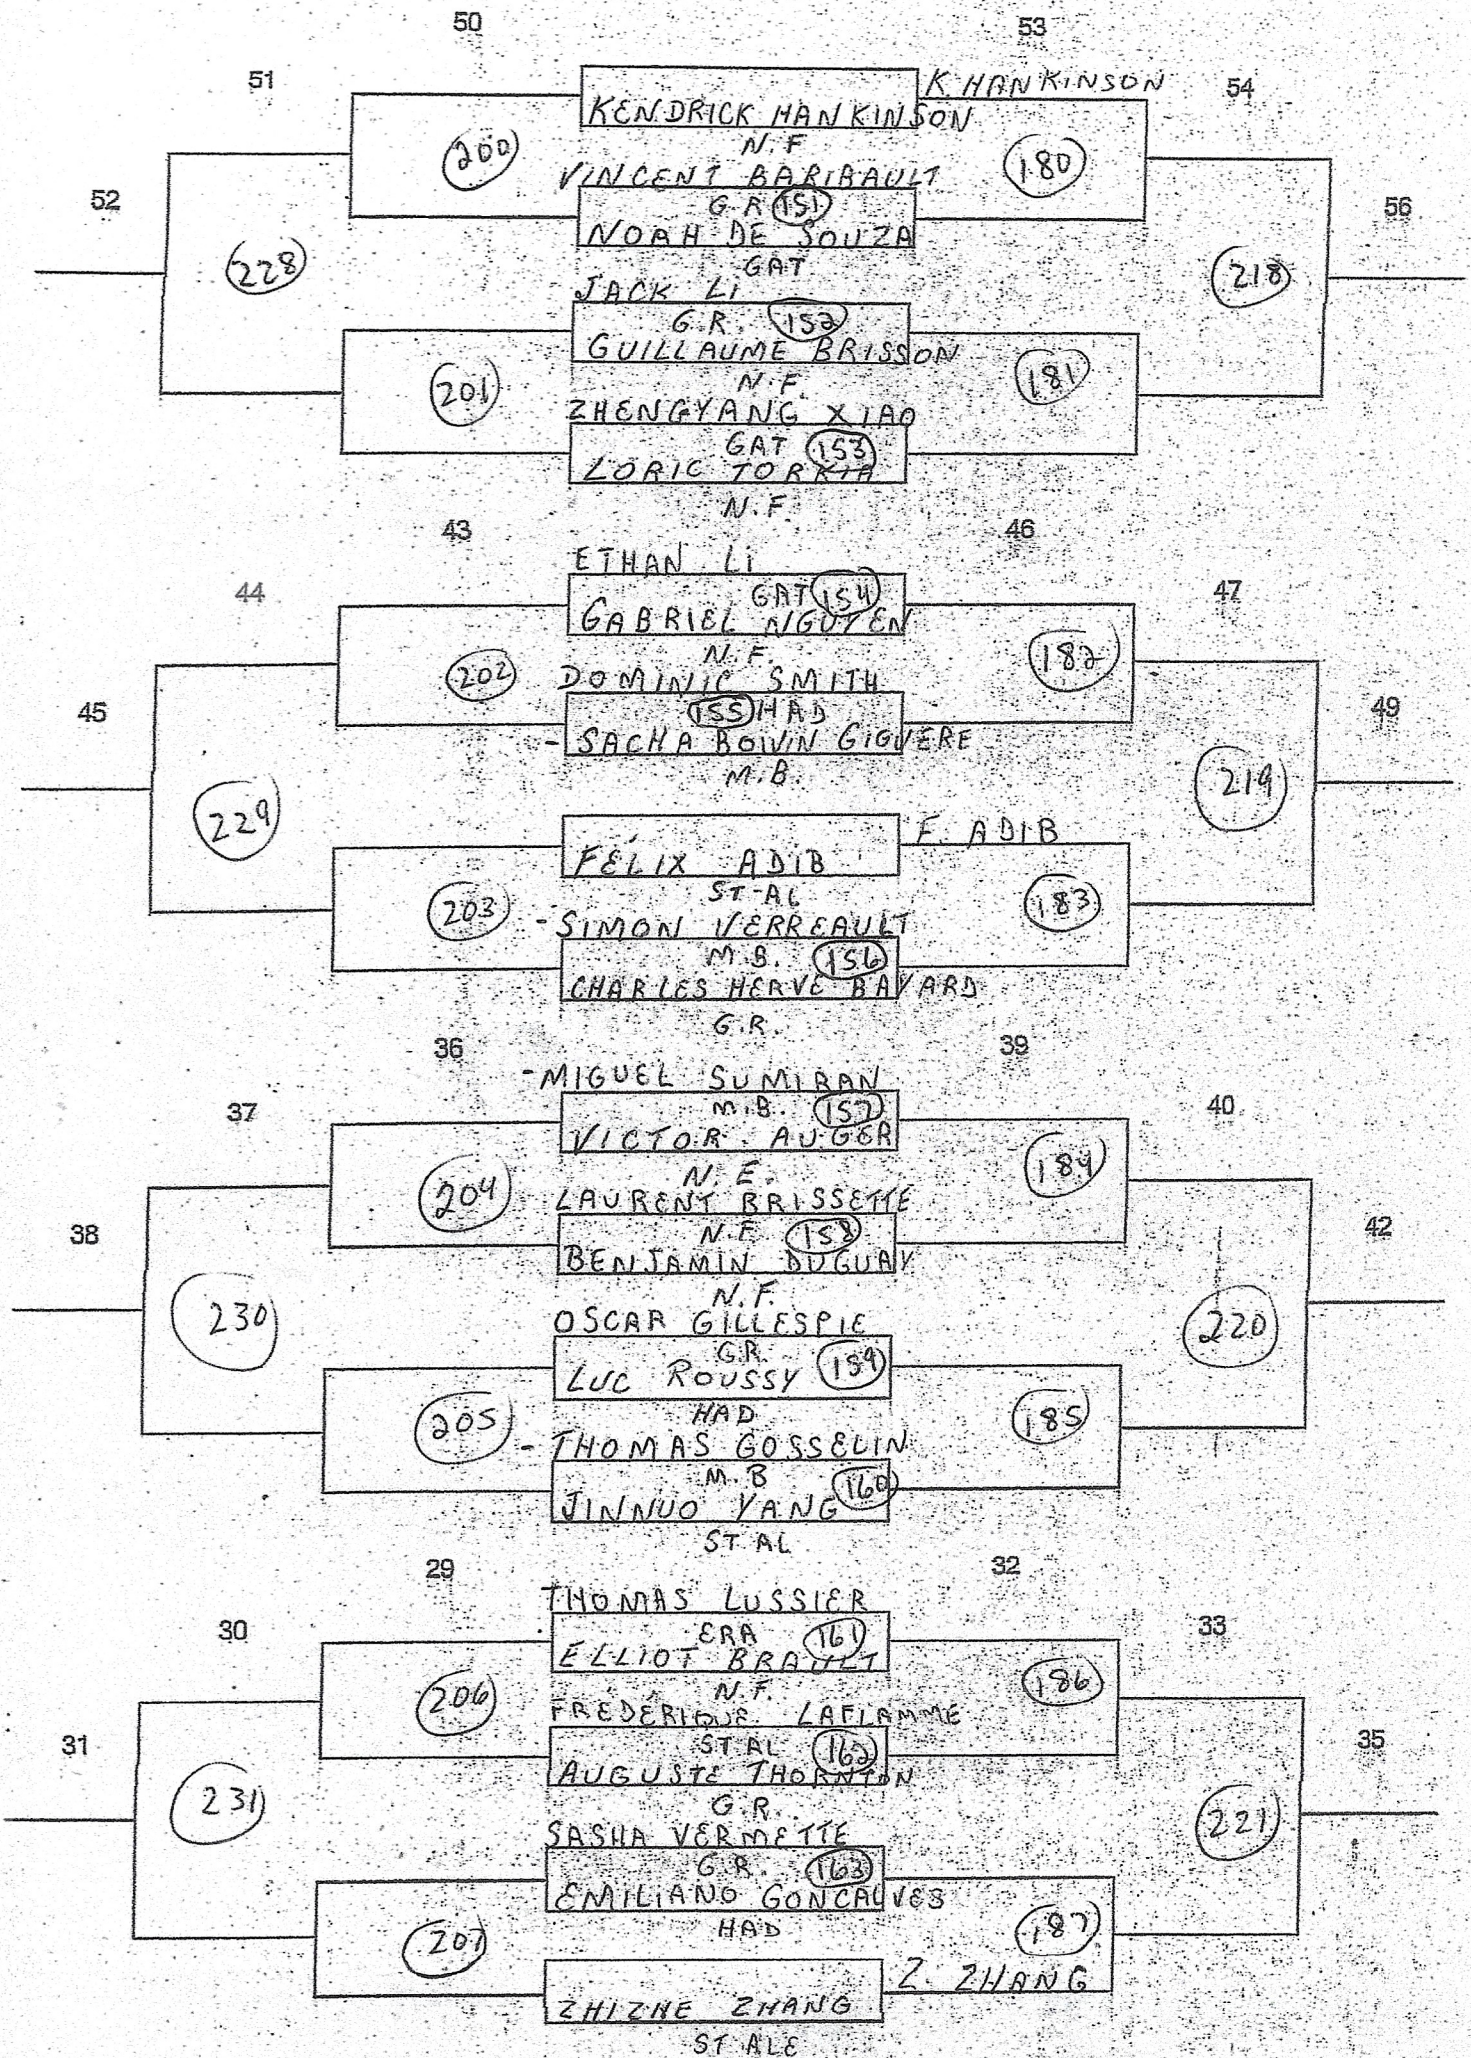 50
53
51
K. HANKINSON
54
KENDRICK HANKINSON
N.F
200
180
VINCENT BARIBAULT
52
G.R 151
56
NOAH DE SOUZA
GAT
228
218
JACK Li
G.R. 152
GUILLAUME BRISSON
N.F.
201
181
ZHENGYANG XIAO
GAT 153
LORIC TORKIA
N.F.
43
46
ETHAN Li
44
GAT 154
47
GABRIEL NGUYEN
N.F.
202
182
DOMINIC SMITH
45
155 HAD
49
- SACHA BOIVIN GIGUERE
M.B.
229
219
F. ADIB
FÉLIX ADIB
ST-AL
203
183
- SIMON VERREAULT
M.B. 156
CHARLES HERVE BAYARD
G.R.
36
39
- MIGUEL SUMIRAN
37
M.B. 157
40
VICTOR AUGER
N.F.
204
184
LAURENT BRISSETTE
38
N.F. 158
42
BENJAMIN DUGUAY
N.F.
230
220
OSCAR GILLESPIE
G.R.
LUC ROUSSY 159
HAD
205
185
- THOMAS GOSSELIN
M.B 160
JINNUO YANG
ST AL
29
32
THOMAS LUSSIER
30
ERA 161
33
ELLIOT BRAULT
N.F.
206
186
FRÉDÉRIQUE LAFLAMME
31
ST AL 162
35
AUGUSTE THORNTON
G.R.
231
221
SASHA VERMETTE
G.R. 163
EMILIANO GONCALVES
HAD
207
187
Z. ZHANG
ZHIZHE ZHANG
ST ALE